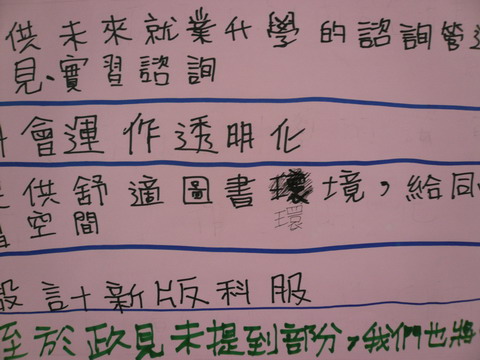 供未來就業升學的諮詢管道
見、實習諮詢
會運作透明化
供舒適圖書環境，給同
空間
環
設計新版科服
至於政見未提到部分，我們也將